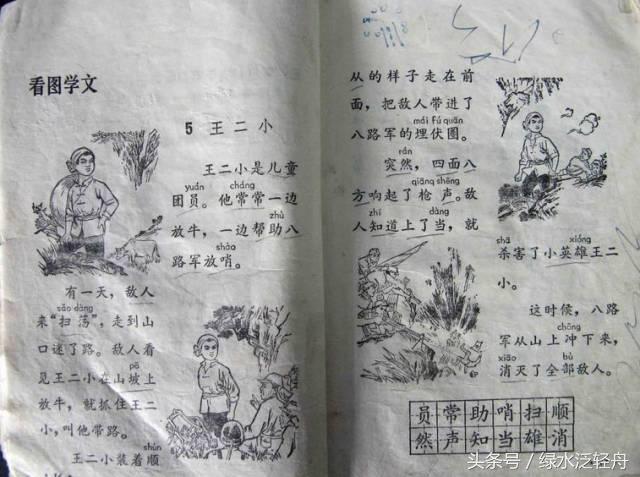 看图学文
5 王二小
王二小是儿童
yuán cháng
团员。他常常一边
zhù
放牛，一边帮助八
shào
路军放哨。
有一天，敌人
sǎo dàng
来“扫荡”，走到山
口迷了路。敌人看
pō
见王二小在山坡上
放牛，就抓住王二
小，叫他带路。
shùn
王二小装着顺
从的样子走在前
面，把敌人带进了
mái fú quān
八路军的埋伏圈。
rán
突然，四面八
qiāng shēng
方响起了枪声。敌
zhī dàng
人知道上了当，就
shā xióng
杀害了小英雄王二
小。
这时候，八路
chōng
军从山上冲下来，
xiāo bù
消灭了全部敌人。
员常助哨扫顺
然声知当雄消
头条号／绿水泛轻舟